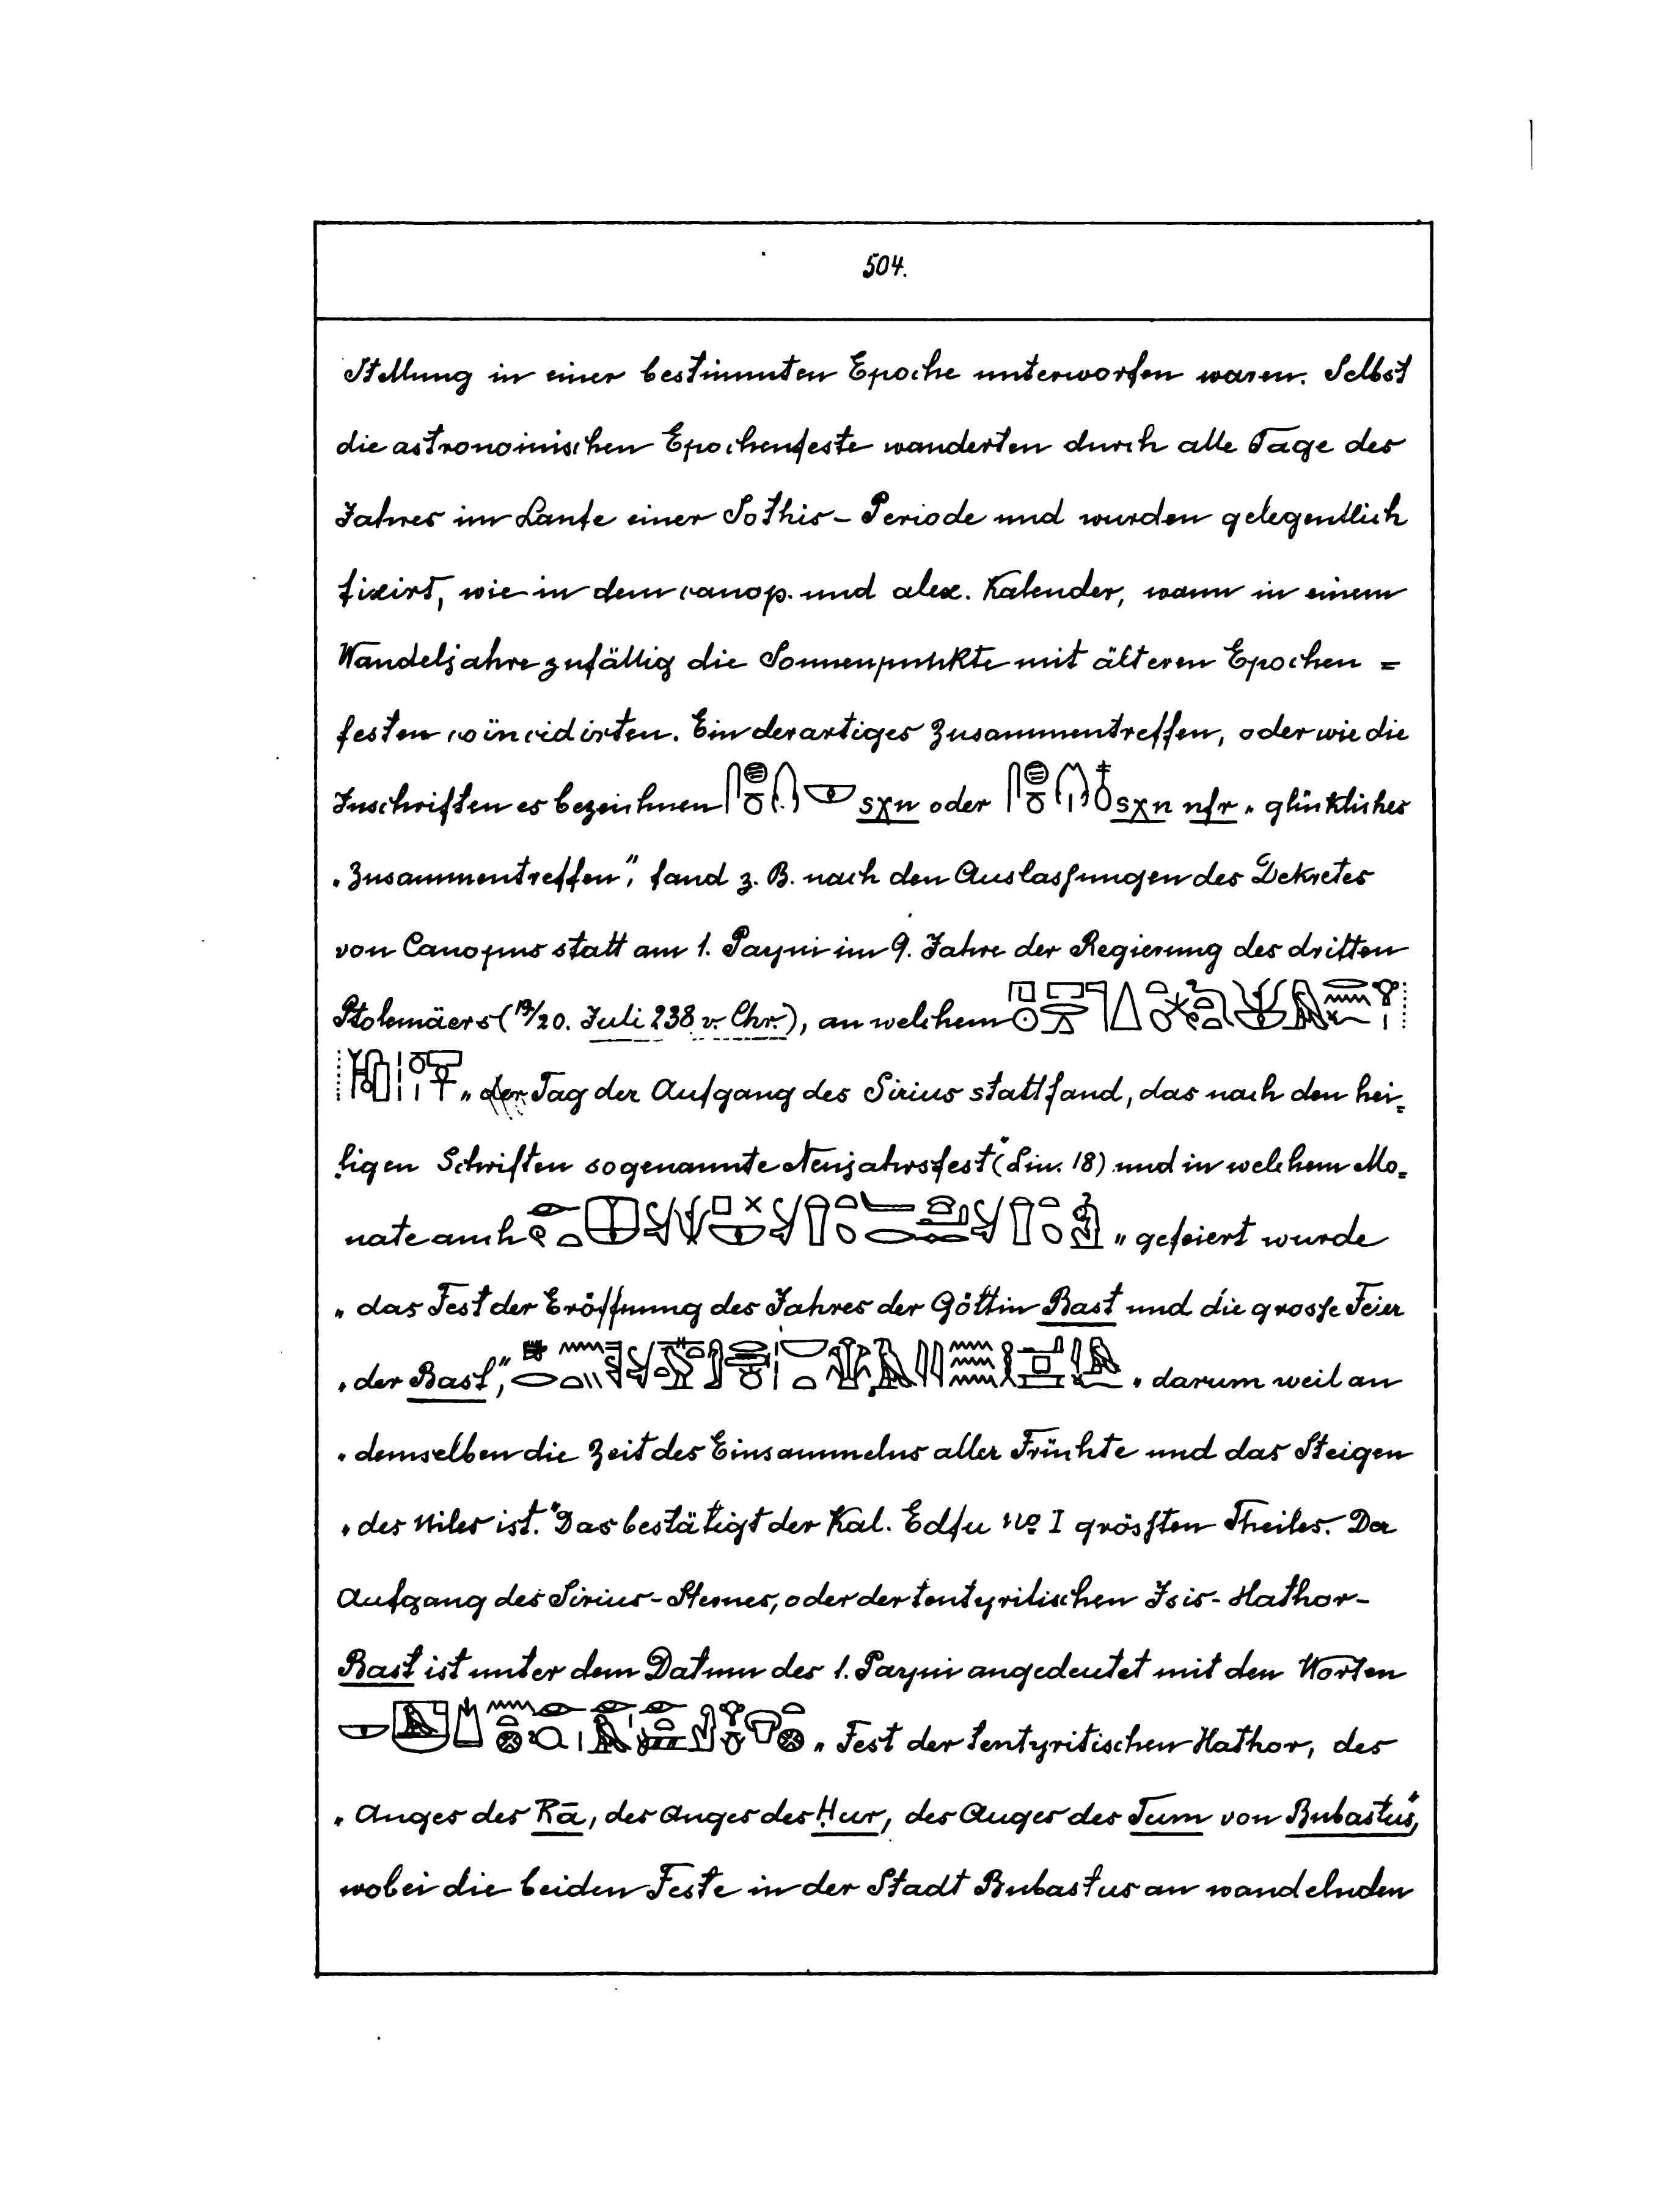 504.
Stellung in einer bestimmten Epoche unterworfen waren. Selbst
die astronomischen Epochenfeste wanderten durch alle Tage des
Jahres im Laufe einer Sothis-Periode und wurden gelegentlich
fixirt, wie in dem canop. und alex. Kalender, wann in einem
Wandeljahre zufällig die Sonnenpunkte mit älteren Epochen=
festen coïncidirten. Ein derartiges Zusammentreffen, oder wie die
Inschriften es bezeichnen sχn oder sχn nfr „glückliches
„Zusammentreffen", fand z. B. nach den Auslassungen des Dekretes
von Canopus statt am 1. Payni im 9. Jahre der Regierung des dritten
Ptolemäers (19/20. Juli 238 v. Chr.), an welchem
„der Tag der Aufgang des Sirius stattfand, das nach den hei=
ligen Schriften sogenannte Neujahrsfest" (Lin. 18) und in welchem Mo=
nate auch „gefeiert wurde
„das Fest der Eröffnung des Jahres der Göttin Bast und die grosse Feier
„der Bast", „darum weil an
„demselben die Zeit des Einsammelns aller Früchte und das Steigen
„des Niles ist." Das bestätigt der Kal. Edfu No I grössten Theiles. Der
Aufgang des Sirius-Sternes, oder der tentyritischen Isis-Hathor-
Bast ist unter dem Datum des 1. Payni angedeutet mit den Worten
„Fest der tentyritischen Hathor, des
„Auges des Rā, des Auges des Ḥur, des Auges des Tum von Bubastus",
wobei die beiden Feste in der Stadt Bubastus an wandelnden